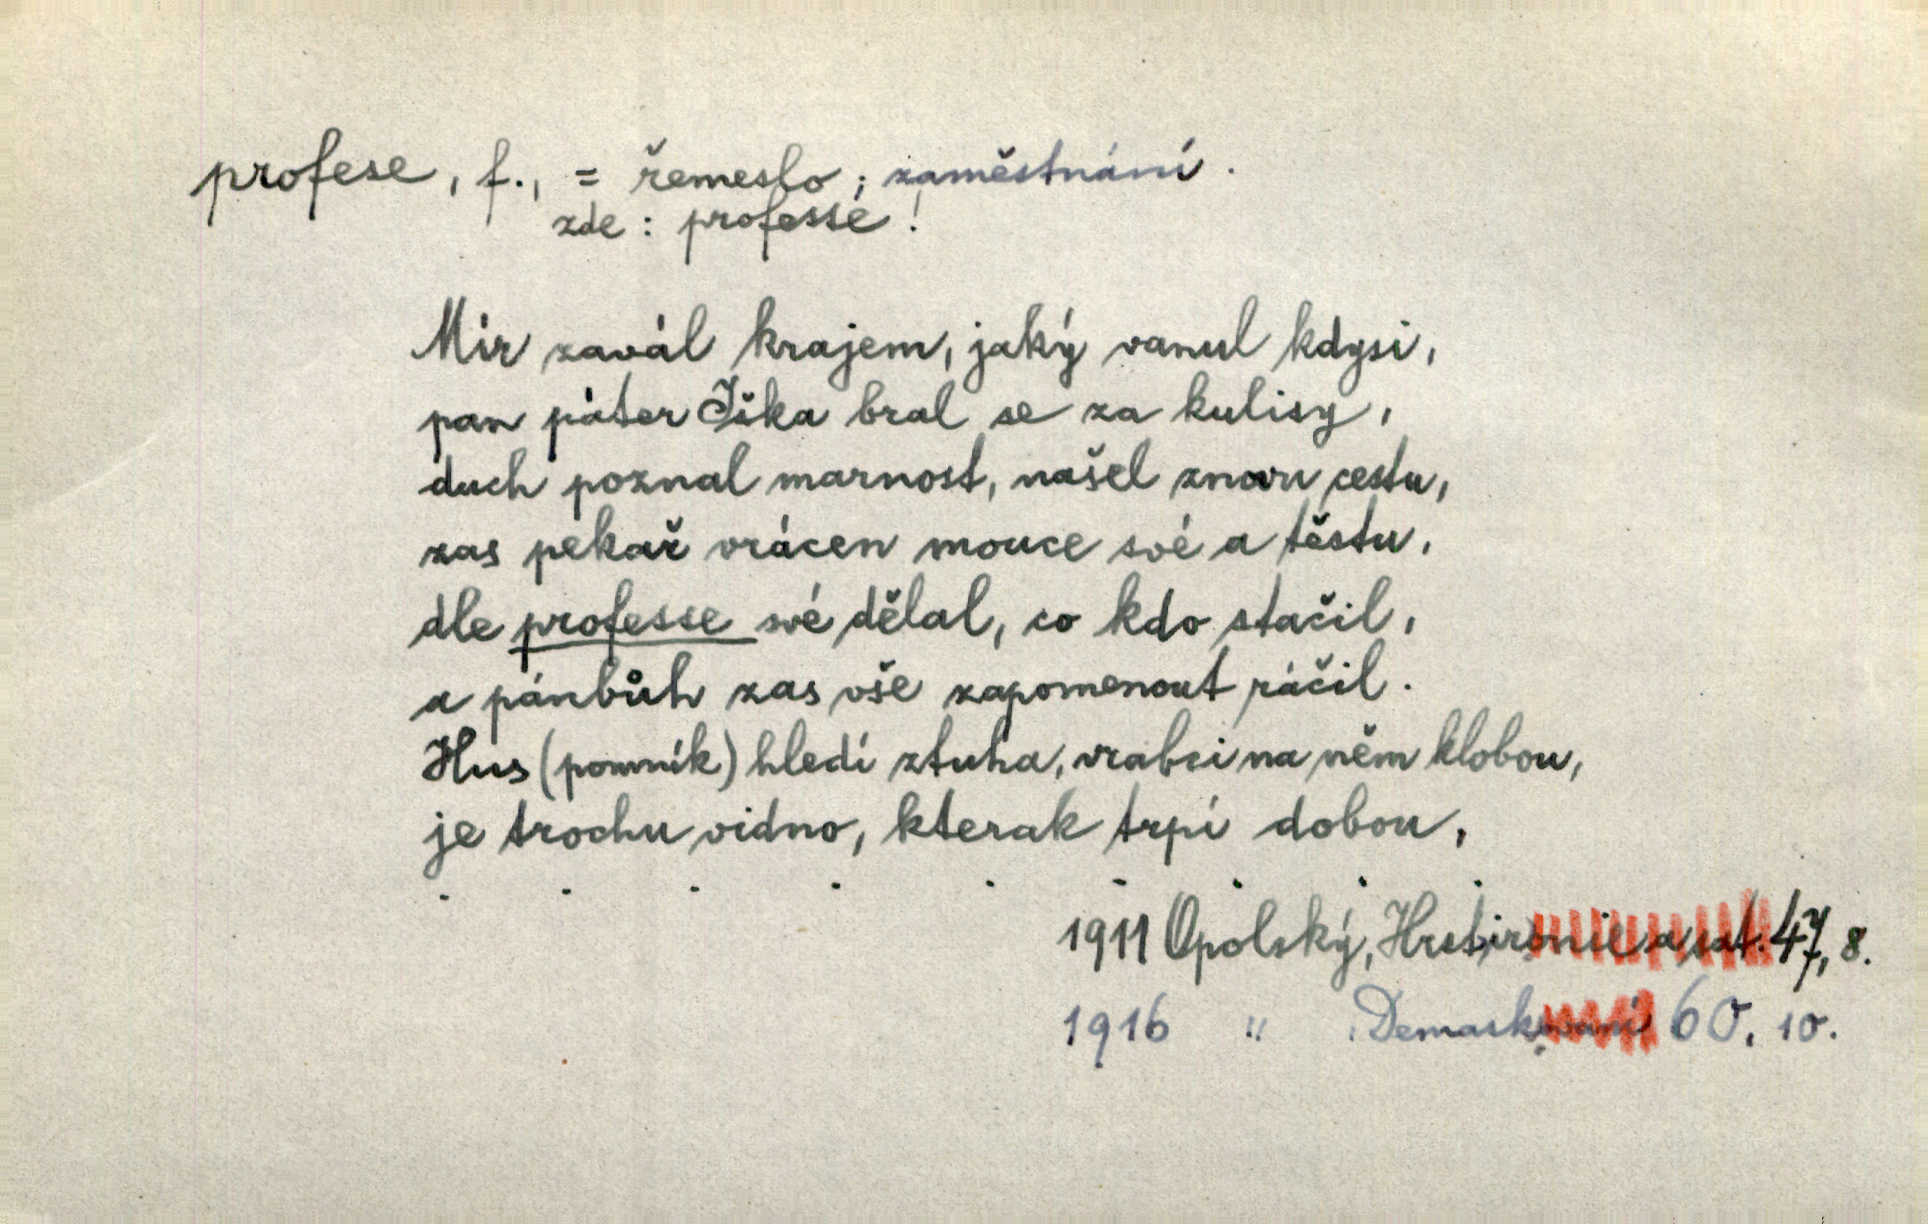 profese, f., = řemeslo; zaměstnání.
zde: professe!
Mír zavál krajem, jaký vanul kdysi,
pan páter Iška bral se za kulisy,
duch poznal marnost, našel znovu cestu,
zas pekař vrácen mouce své a těstu,
dle professe své dělal, co kdo stačil,
a pánbůh zas vše zapomenout ráčil.
Hus (pomník) hledí ztuha, vrabci na něm klobou,
je trochu vidno, kterak trpí dobou,
. . . . . . . . .
1911 Opolský, Hrst ironie a sat. 47, 8.
1916 " Demaskování 60, 10.